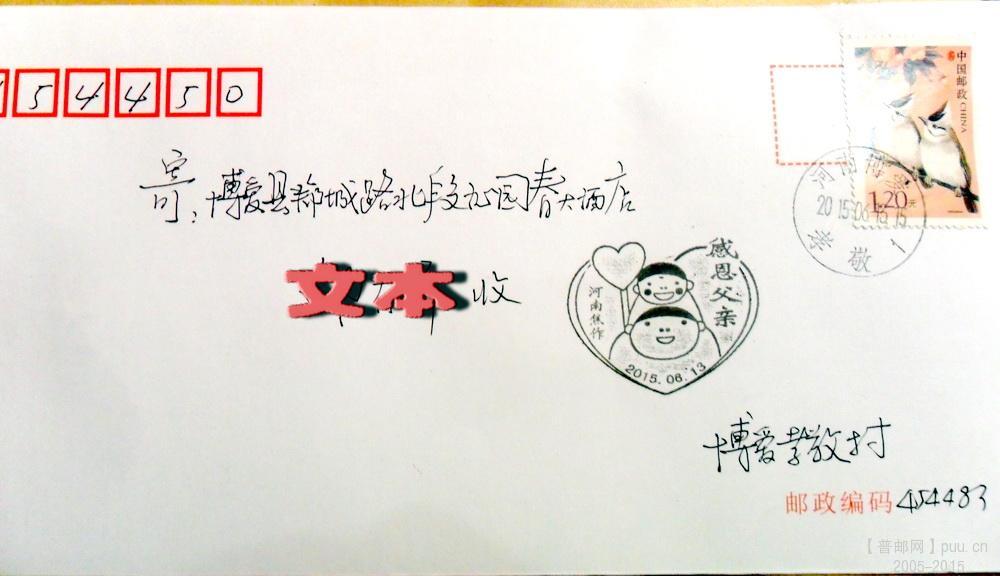 54450
中国邮政 CHINA
1.20元
寄:博爱县鄈城路北段沁园春大酒店
河南博爱
2015.06.15.15
孝敬 1
文本 收
感恩父亲
河南焦作
2015.06.13
博爱孝敬村
邮政编码 454483
【普邮网】puu.cn
2005-2015